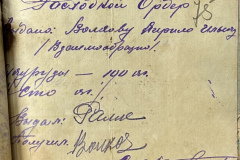 Расходной Ордер
Выдано: Волкову Кирилу Ильичу
/Взаимообразно/.
Кукурузы — 100 кг.
Сто кг.
Выдал:
Получил: Волков